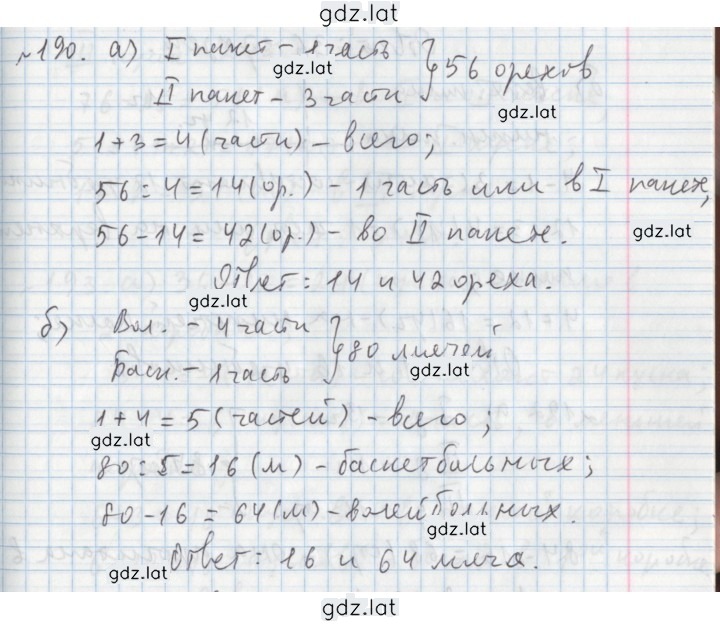 gdz.lat
№190. а) I пакет - 1 часть
gdz.lat
} 56 орехов
II пакет - 3 части
gdz.lat
1+3=4(части) - всего;
56:4=14(ор.) - 1 часть или в I пакет,
56-14=42(ор.) - во II пакет.
gdz.lat
Ответ: 14 и 42 ореха.
gdz.lat
б) Вол. - 4 части
} 80 мячей
Баск. - 1 часть
gdz.lat
1+4=5(частей) - всего;
gdz.lat
80:5=16(м) - баскетбольных;
80-16=64(м) - волейбольных.
gdz.lat
Ответ: 16 и 64 мяча.
gdz.lat
gdz.lat